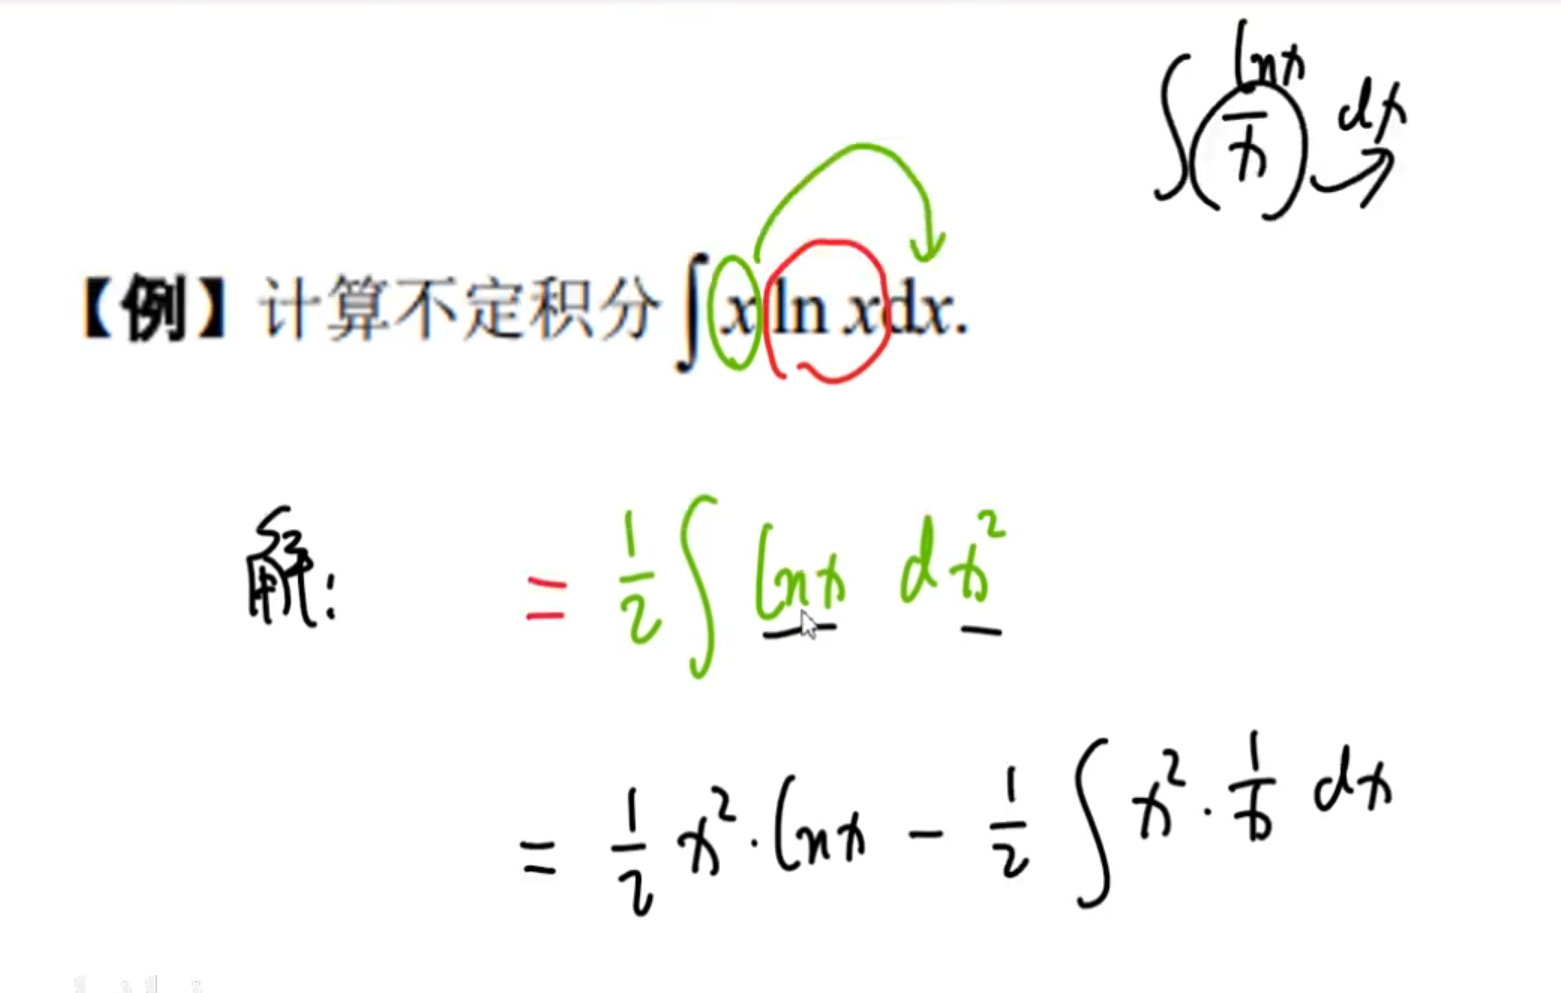 ∫ (ln x / x) dx
【例】计算不定积分∫x ln x dx.
解: = 1/2 ∫ ln x dx²
= 1/2 x² · ln x − 1/2 ∫ x² · 1/x dx